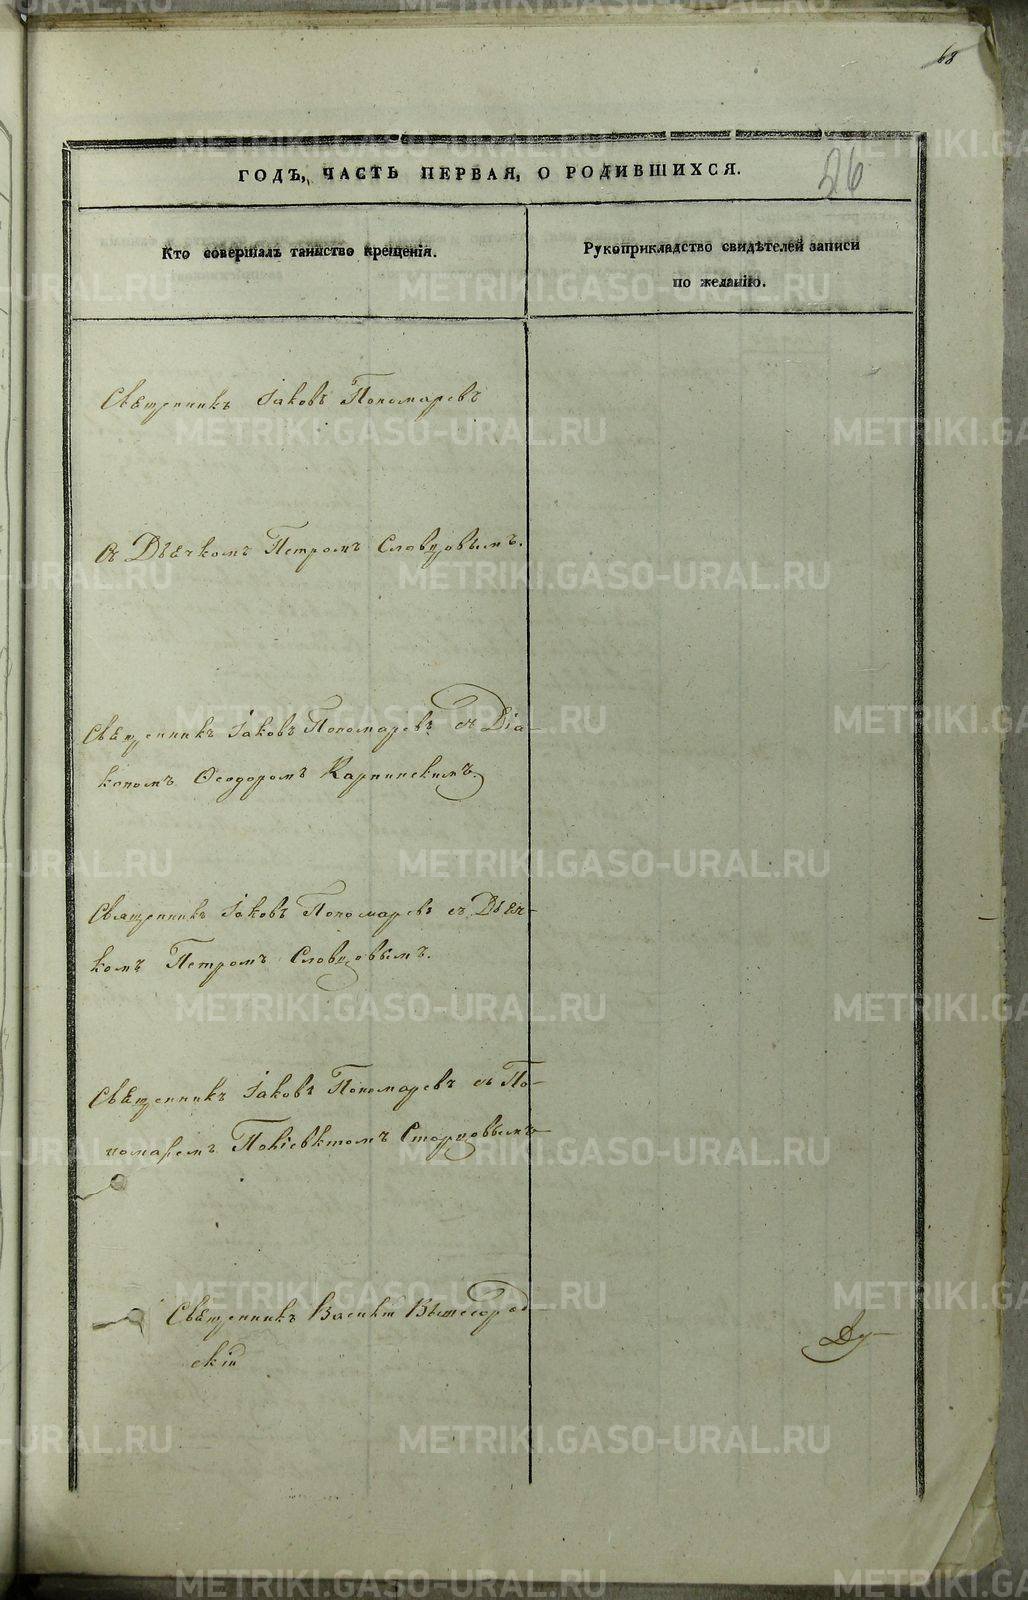 68
ГОДЪ, ЧАСТЬ ПЕРВАЯ, О РОДИВШИХСЯ.
26
Кто совершалъ таинство крещенія.
Рукоприкладство свидѣтелей записи
по желанію.
Священникъ Іаковъ Пономаревъ
съ Дьячкомъ Петромъ Словцовымъ.
Священникъ Іаковъ Пономаревъ съ Діа-
кономъ Ѳеодоромъ Карпинскимъ
Священникъ Іаковъ Пономаревъ съ Дьяч-
комъ Петромъ Словцовымъ.
Священникъ Іаковъ Пономаревъ съ По-
номаремъ Поліевктомъ Старцовымъ
Священникъ Василій Вышегород
скій
METRIKI.GASO-URAL.RU